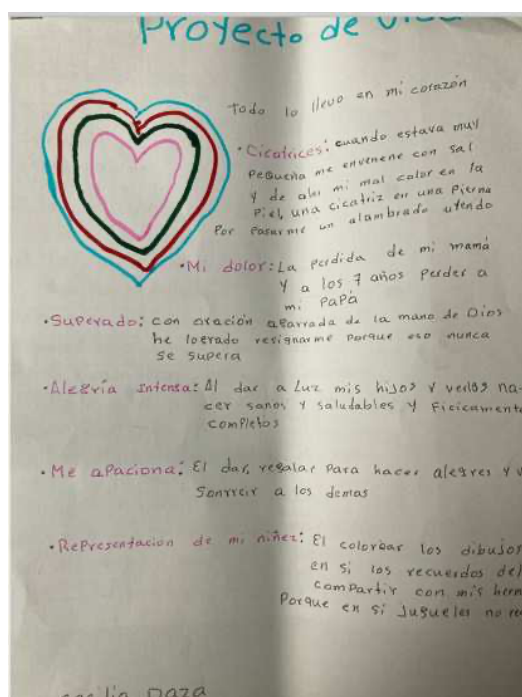 Proyecto de Vida
Todo lo llevo en mi corazón
• Cicatrices: cuando estava muy
pequeña me envenene con sal
y de ahi mi mal color en la
piel, una cicatriz en una pierna
Por pasarme un alambrado
• Mi dolor: La perdida de mi mamá
y a los 7 años perder a
mi papá
• Superado: con oración agarrada de la mano de Dios
he logrado resignarme porque eso nunca
se supera
• Alegría Intensa: Al dar a Luz mis hijos y verlos na-
cer sanos y saludables y Ficicamente
completos
• Me apaciona: El dar, regalar para hacer alegres y
Sonrreir a los demas
• Representacion de mi niñez: El colorear los dibujos
en si los recuerdos del
compartir con mis
Porque en si Jugueles no
Daza